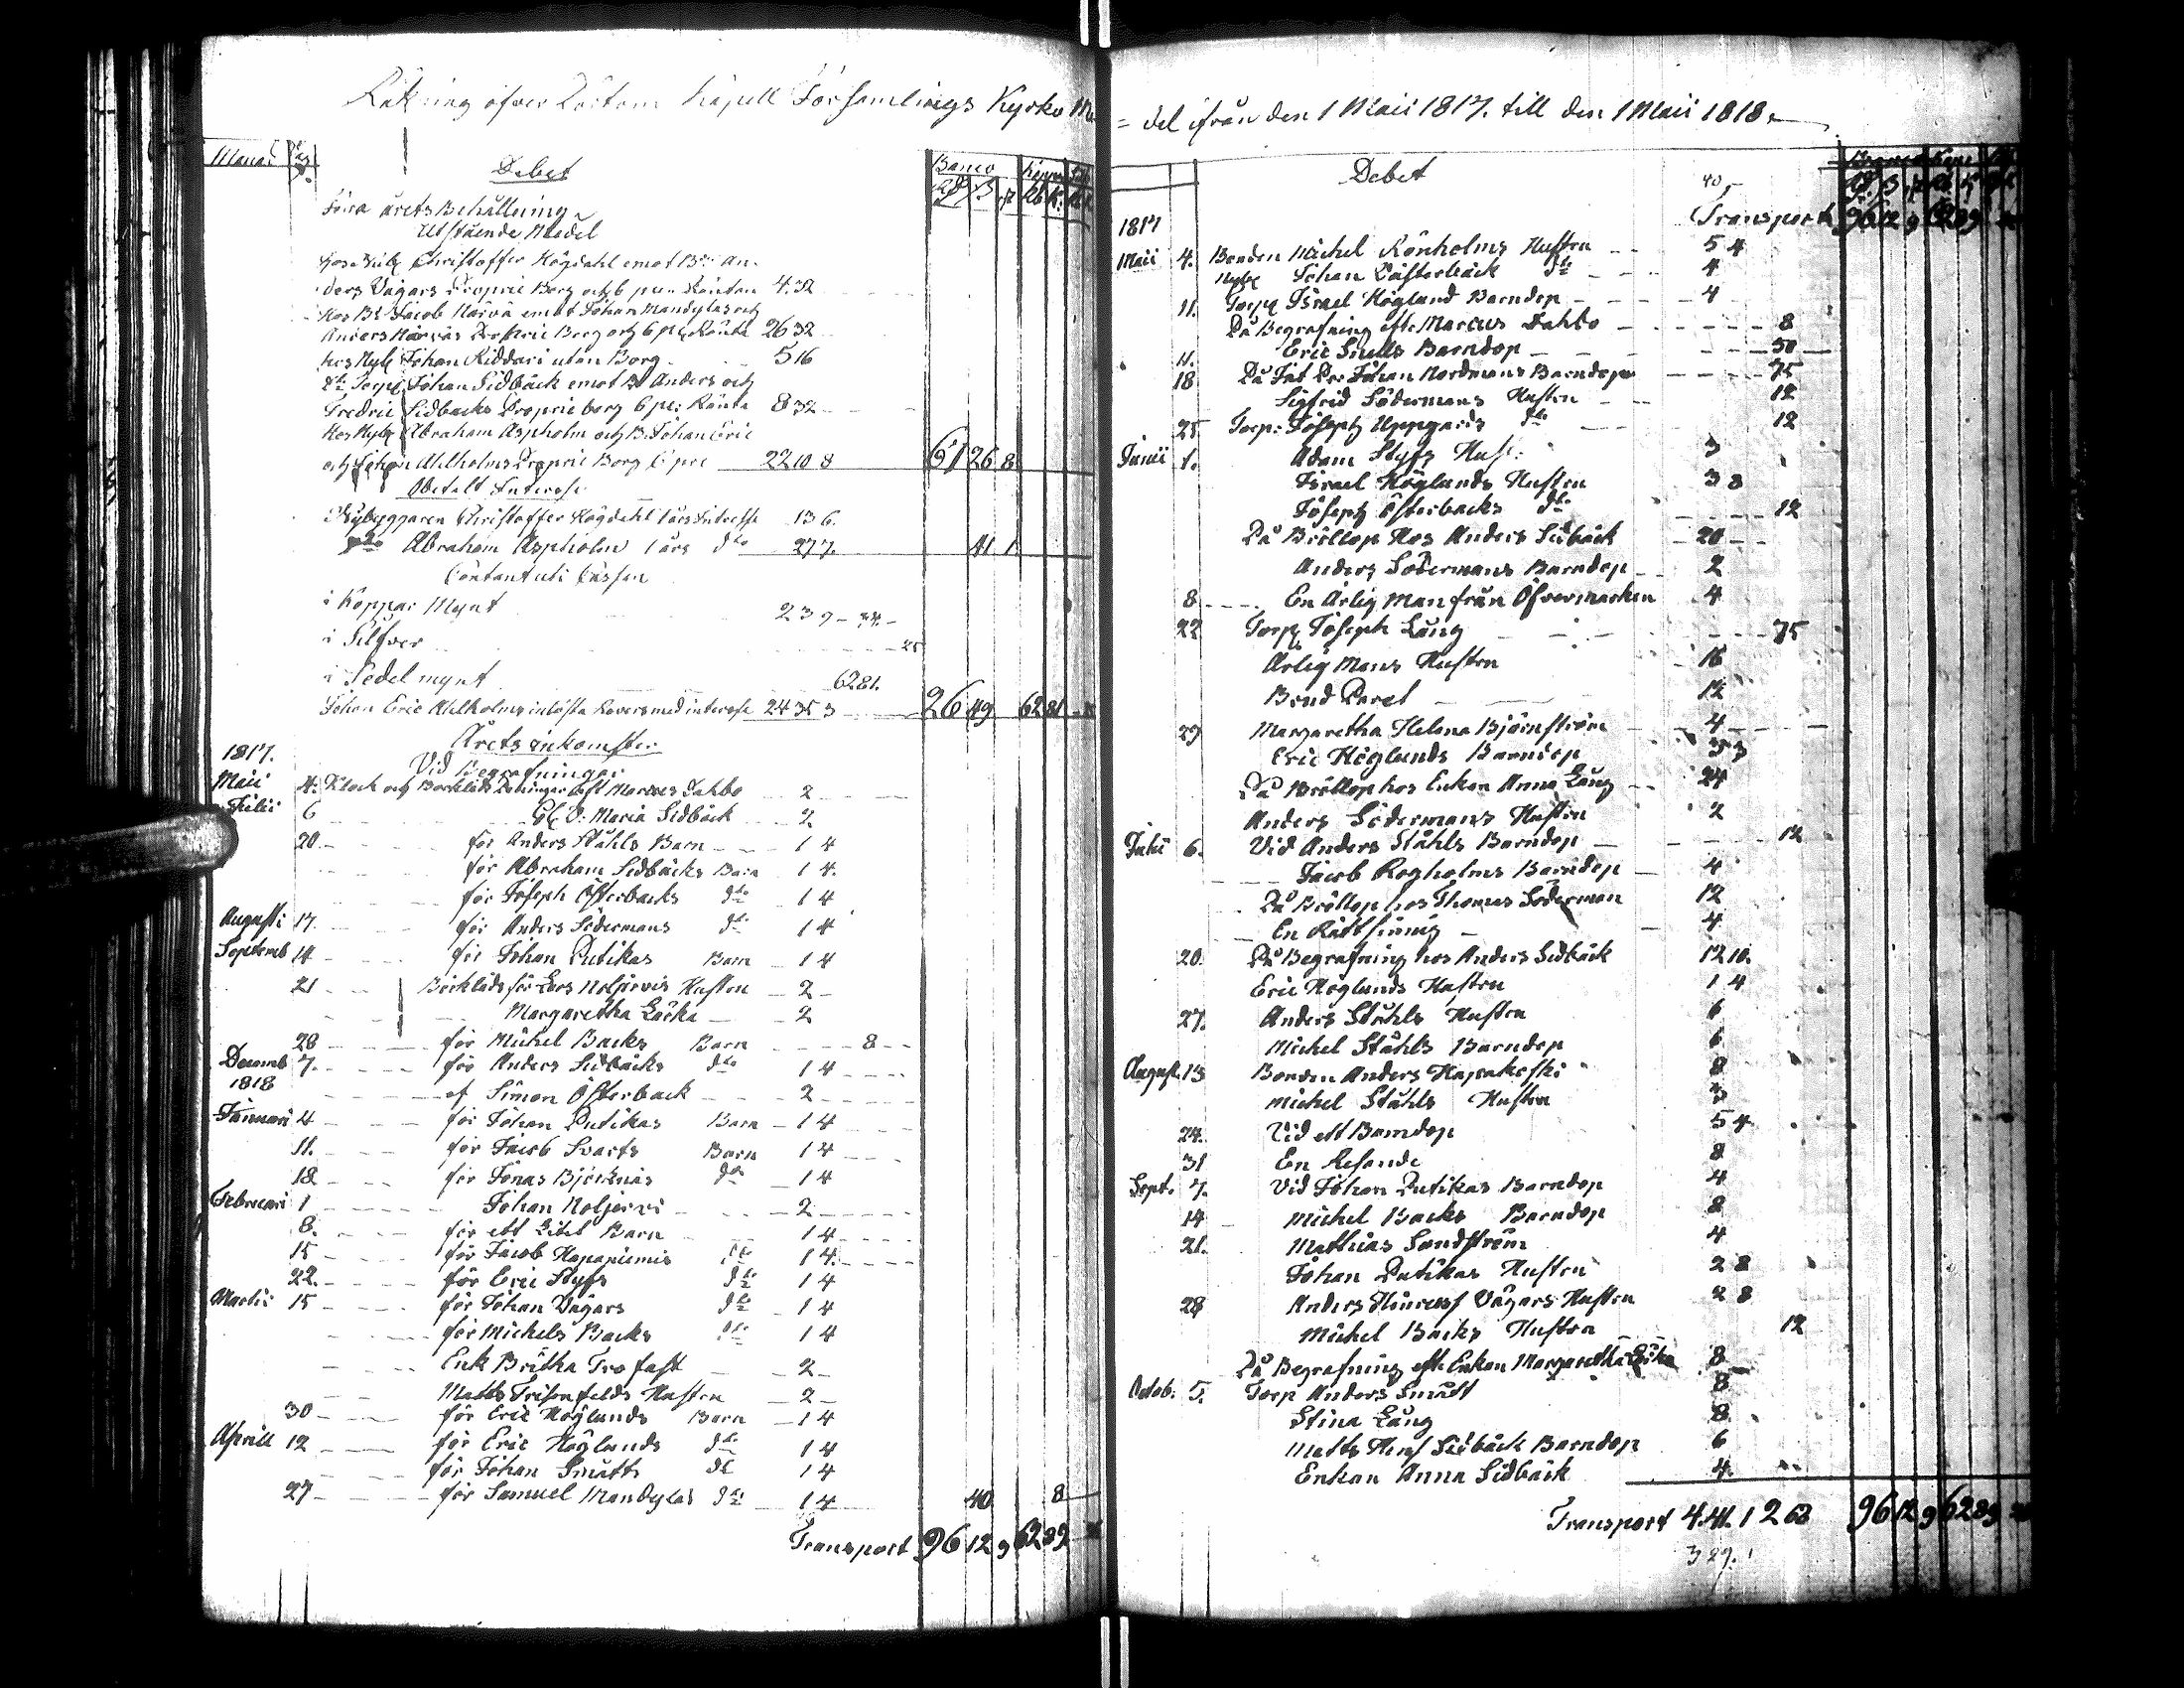 Räkning öfver Rörtom Kapell Församlings Kyrko Me
Månad Dag
Debet
Banco Koppar Silf
Rd ß rst Rb K: Rb K
Förra årets Behållning
Utstående Medel
hos Nyb Christoffer Högdahl emot Br An-
ders Vägars Proprie Borg och 6 pcr Räntan 4.32
Hos Br Jacob Närvä emot Johan Mandylas och
Anders Närväs Proprie Borg och 6 pc Ränta 26 32
hos Nyb Johan Riddari utan Borg 5 16
dto Torp Johan Sidbäck emot Br Anders och
Fredric Sidbacks Proprie borg 6 pc: Ränta 8 32
Hos Nyb Abraham Aspholm och B. Johan Eric
och Johan Ahlholms Proprie Borg 6 prc 22 10 8 61 26 8
Obetalt Interesse
Nybyggaren Christoffer Högdahl 1 års Interesse 13 6.
dto Abraham Aspholm 1 års dto 27 7. 41 1
Contant uti Cassan
i Koppar Mynt 2 39
i Silfver 25
i Sedel mynt 62 81.
Johan Eric Ahlholms inlösta Revers med interesse 24 35 3 26 49 62 81
Årets inkomster
1817. Vid Begrafningar
Maii 4. Klock och Bårkläds Peningar eft Marcus Dahlbo 2
Julii 6 Maria Sidbäck 2
20 för Anders Ståhls Barn 1 4
för Abraham Sidbäcks Barn 1 4.
för Joseph Österbacks dto 1 4
Augusti 17. för Anders Södermans dto 1 4
Septemb 14 för Johan Putikas Barn 1 4
21 Bårkläds för Lars Noljärvis Hustru 2
Margaretha Lärka 2
28 för Michel Backs Barn 8
Decemb 7. för Anders Sidbäcks dto 1 4
1818 af Simon Österback 2
Januari 4 för Johan Putikas Barn 1 4
11. för Jacob Svarts Barn 1 4
18 för Jonas Björknäs dto 1 4
Februari 1 Johan Noljervi 2
8. för ett Litet Barn 1 4
15 för Jacob Hapaniemis dto 1 4.
22. för Eric Styfs dto 1 4
Martii 15 för Johan Vägars dto 1 4
för Michels Backs dto 1 4
Enk Britha Trofast 2
Matts Frisenfelds Hustru 2
30 för Eric Höglunds Barn 1 4
Aprill 12 för Eric Höglunds dto 1 4
för Johan Smätts dto 1 4
27 för Samuel Mandylas dto 1 4 40 8
Transport 96 12 9 62 89
= del ifrån den 1 Maii 1817. till den 1 Maii 1818.
Debet
1817 Transport 96 12 9 62 89
Maii 4. Bonden Michel Rönholms Hustru 5 4
Nyb Johan Västerbäck dto 4
11. Torp Israel Höglund Barndop 4
På Begrafning efte Marcus Dahlbo 8
11. Eric Snells Barndop 50
18 Johan Nordmans Barndop 75
Sigfrid Södermans Hustru 12
25 Torp: Joseph Uppgårds dto 12
Junii 1. Adam Styfs Hust: 3
Israel Höglunds Hustru 3 8
Joseph Österbacks dto 12
På Bröllop Hos Anders Sidbäck 20
Anders Södermans Barndop 2
8 En Ärlig Man från Öfvermarken 4
22 Torp Joseph Lång 75
Ärlig Mans Hustru 16
Brud Paret 12
29 Margaretha Helena Björnström 4
Eric Höglunds Barndop 3 3
På Bröllop hos Enkan Anna Lång 24
Anders Södermans Hustru 2
Julii 6. Vid Anders Ståhls Barndop 12
Jacob Rogholms Barndop 4
På Bröllop hos Thomas Söderman 12
En Rättsinnig 4
20. På Begrafning hos Anders Sidbäck 12 10.
Eric Höglunds Hustru 1 4
27. Anders Ståhls Hustru 6
Michel Ståhls Barndop 6
August. 13 Bonden Anders Hapakoski 8
Michel Ståhls Hustru 3
24. Vid ett Barndop 5 4
31 En Resande 8
Sept. 7. Vid Johan Putikas Barndop 4
14 Michel Backs Barndop 8
21. Matthias Sandström 4
Johan Putikas Hustru 2 8
28 Anders Vägars Hustru 2 8
Michel Backs Hustru 12
På Begrafning eft Enkan Margaretha Lärka 8
Octob. 5. Torp Anders Smätt 8
Stina Lång 8
Matts Sidbäck Barndop 6
Enkan Anna Sidbäck 4.
Transport 4.41. 1 2 62 96 12 9 62 89
3 29.